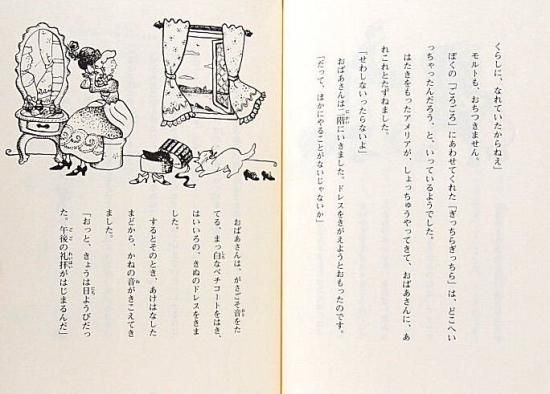 くらしに、なれていたからねえ」
モルトも、おちつきません。
ぼくの「ごろごろ」にあわせてくれた「ぎっちらぎっちら」は、どこへい
っちゃったんだろう、と、いっているようでした。
はたきをもったアメリアが、しょっちゅうやってきて、おばあさんに、あ
れこれとたずねました。
「せわしないったらないよ」
おばあさんは、二階にいきました。ドレスをきがえようとおもったのです。
「だって、ほかにやることがないじゃないか」
おばあさんは、がさごそ音をた
てる、まっ白なペチコートをはき、
はいいろの、きぬのドレスをきま
した。
するとそのとき、あけはなした
まどから、かねの音がきこえてき
ました。
「おっと、きょうは日ようびだっ
た。午後の礼拝がはじまるんだ」